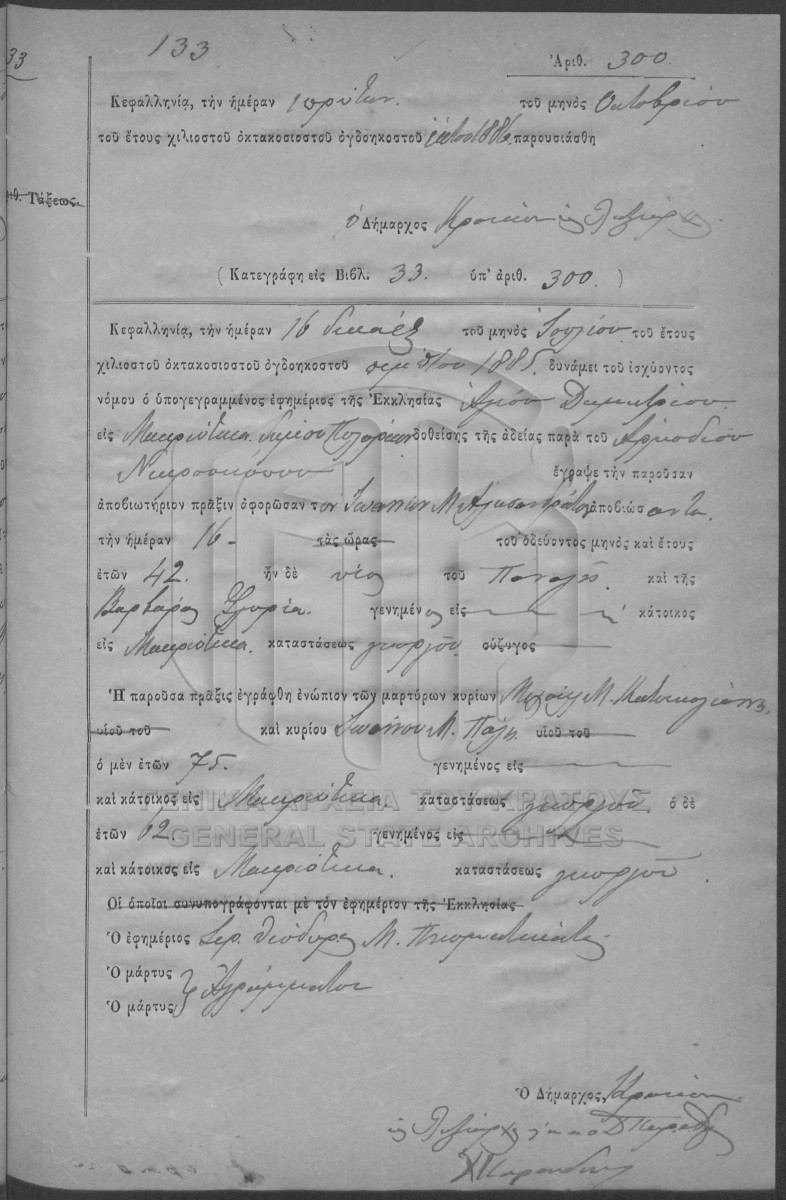 33
133
Ἀριθ. 300
Κεφαλληνίᾳ, τὴν ἡμέραν πρώτην. τοῦ μηνὸς Ὀκτωβρίου
τοῦ ἔτους χιλιοστοῦ ὀκτακοσιοστοῦ ὀγδοηκοστοῦ ἕκτου 1886. παρουσιάσθη
ριθ. Τάξεως.
ὁ Δήμαρχος Κρανίων
( Κατεγράφη εἰς Βιβλ. 33. ὑπ' ἀριθ. 300. )
Κεφαλληνίᾳ, τὴν ἡμέραν 16 δεκαέξ τοῦ μηνὸς Ἰουλίου τοῦ ἔτους
χιλιοστοῦ ὀκτακοσιοστοῦ ὀγδοηκοστοῦ πέμπτου 1885. δυνάμει τοῦ ἰσχύοντος
νόμου ὁ ὑπογεγραμμένος ἐφημέριος τῆς Ἐκκλησίας Ἁγίου Δημητρίου
εἰς Μακριώτικα. δήμου Πυλαρέων δοθείσης τῆς ἀδείας παρὰ τοῦ Ἁρμοδίου
Νεκροσκόπου ἔγραψε τὴν παροῦσαν
ἀποβιωτήριον πρᾶξιν ἀφορῶσαν τὸν Ἰωάννην Μ. ἀποβιώσαντα
τὴν ἡμέραν 16 τὰς ὥρας τοῦ ὁδεύοντος μηνὸς καὶ ἔτους
ἐτῶν 42. ἦν δὲ υἱὸς τοῦ Παναγῆ. καὶ τῆς
Βαρβάρας γενημένος εἰς κάτοικος
εἰς Μακριώτικα. καταστάσεως γεωργοῦ. σύζυγος
Ἡ παροῦσα πρᾶξις ἐγράφθη ἐνώπιον τῶν μαρτύρων κυρίων Μιχαὴλ Μ.
υἱοῦ τοῦ καὶ κυρίου Ἰωάννου Μ. υἱοῦ τοῦ
ὁ μὲν ἐτῶν 75. γενημένος εἰς
καὶ κάτοικος εἰς Μακριώτικα. καταστάσεως γεωργοῦ. ὁ δὲ
ΓΕΝΙΚΑ ΑΡΧΕΙΑ ΤΟΥ ΚΡΑΤΟΥΣ
ἐτῶν 62 γενημένος εἰς
GENERAL STATE ARCHIVES
καὶ κάτοικος εἰς Μακριώτικα. καταστάσεως γεωργοῦ.
Οἱ ὁποῖοι συνυπογράφονται μὲ τὸν ἐφημέριον τῆς Ἐκκλησίας
Ὁ ἐφημέριος Ἱερ. Θεόδωρος Μ.
Ὁ μάρτυς
Ἀγράμματοι
Ὁ μάρτυς
Ὁ Δήμαρχος, Κρανίων